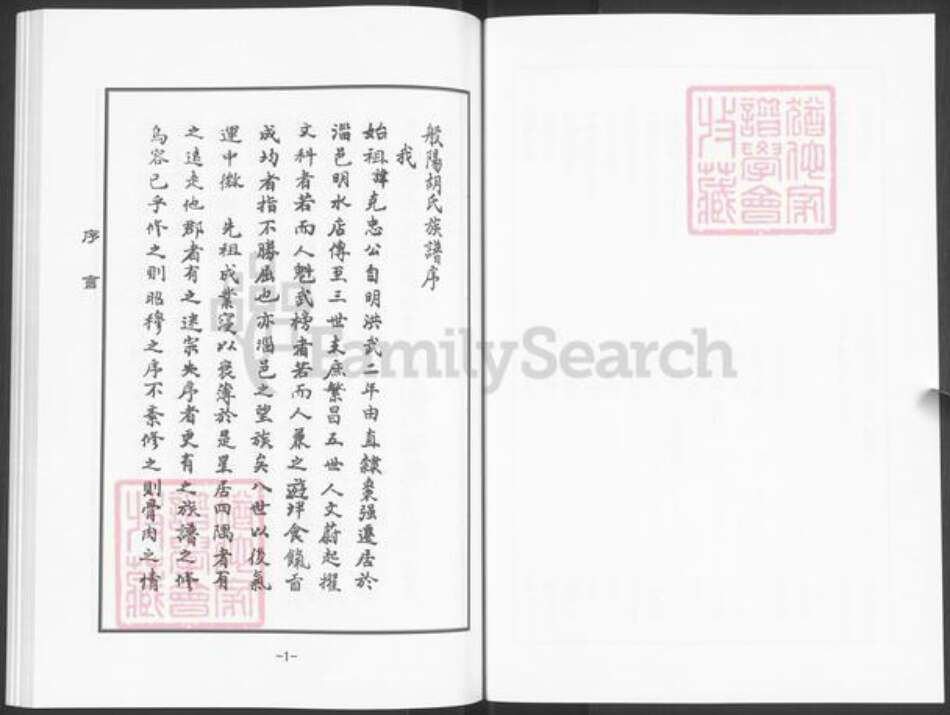 般陽胡氏族譜序
我
始祖諱克忠公自明洪武二年由直隸棗强遷居於
淄邑明水店傳至三世支庶繁昌五世人文蔚起擢
文科者若而人魁武榜者若而人兼之遊坪食餼百
成均者指不勝屈也亦淄邑之望族矣八世以後氣
運中微 先祖成業寖以衰薄於是星居四隅者有
之遠走他郡者有之迷宗失序者更有之族譜之修
烏容已乎修之則昭穆之序不紊修之則骨肉之情
序言
-1-
猶他家
譜學會
收藏
猶他家
譜學會
收藏
FamilySearch